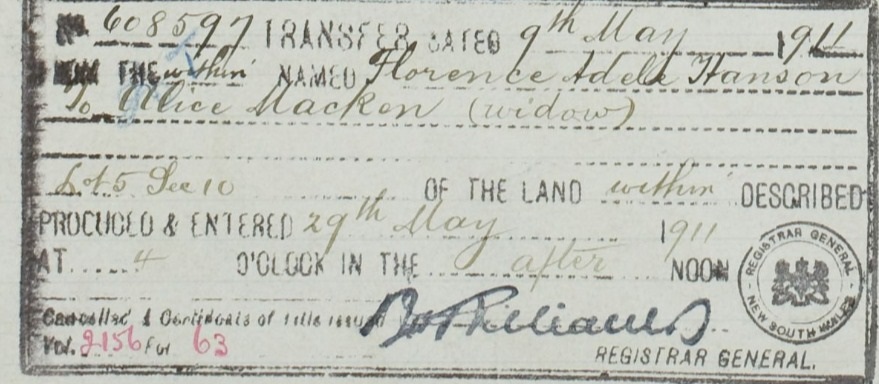 No. 608597 TRANSFER DATED 9th May 1911
FROM THE within NAMED Florence Adele Hanson
To Alice Macken (widow)
Lot 5 Sec 10 OF THE LAND within DESCRIBED
PRODUCED & ENTERED 29th May 1911
AT 4 O'CLOCK IN THE after NOON
Cancelled & Certificate of title issued
Vol. 2156 Fol 63
Williams
REGISTRAR GENERAL.
REGISTRAR GENERAL
NEW SOUTH WALES